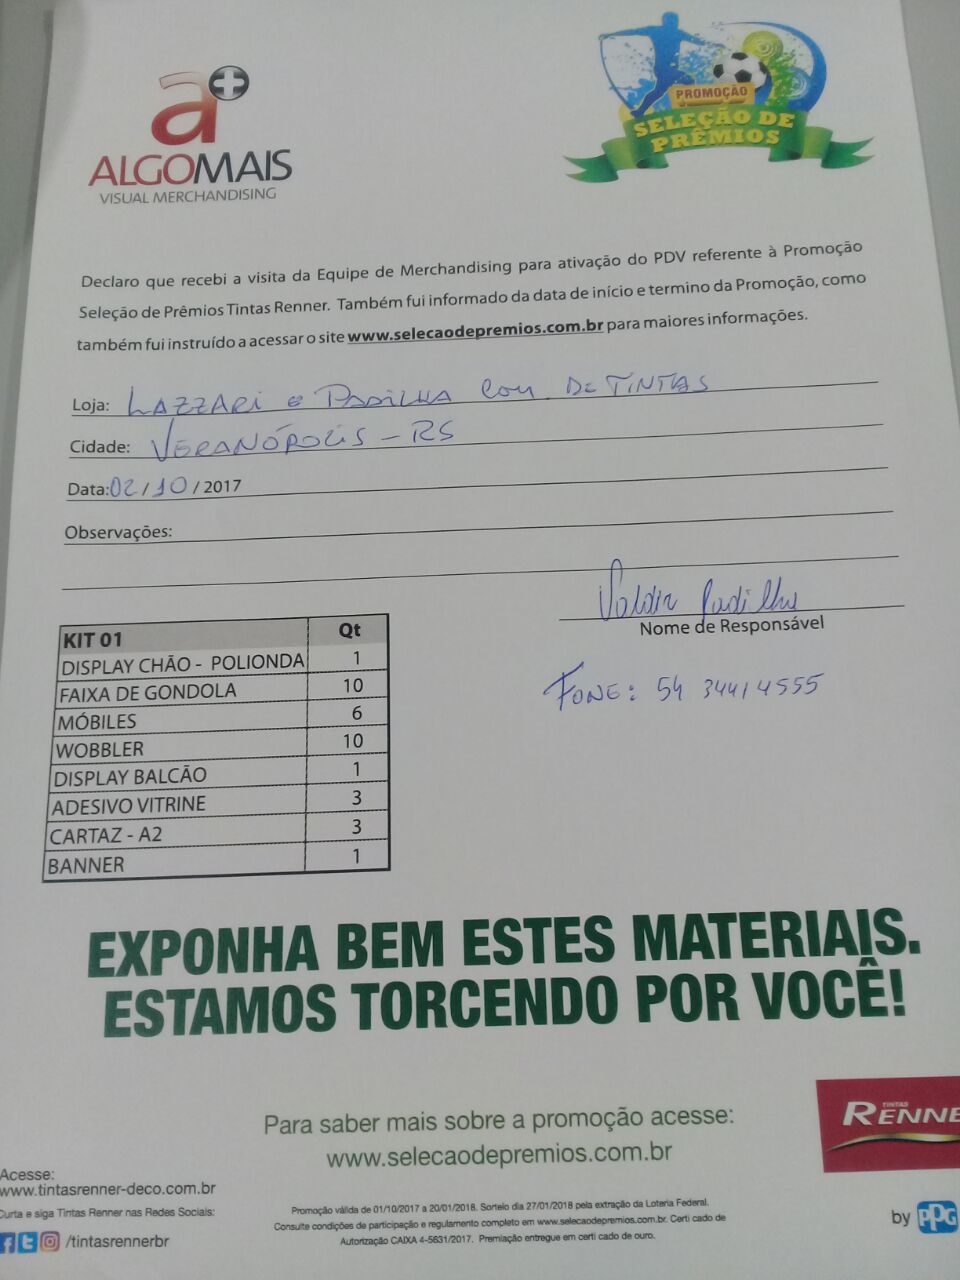 a+
ALGOMAIS
VISUAL MERCHANDISING
PROMOÇÃO
SELEÇÃO DE
PRÊMIOS
Declaro que recebi a visita da Equipe de Merchandising para ativação do PDV referente à Promoção
Seleção de Prêmios Tintas Renner. Também fui informado da data de início e termino da Promoção, como
também fui instruído a acessar o site www.selecaodepremios.com.br para maiores informações.
Loja: LAZZARI e PADILHA COM DE TINTAS
Cidade: VERANÓPOLIS - RS
Data: 02 / 10 / 2017
Observações:
Valdir Padilha
Nome de Responsável
FONE: 54 34414555
KIT 01 Qt
DISPLAY CHÃO - POLIONDA 1
FAIXA DE GONDOLA 10
MÓBILES 6
WOBBLER 10
DISPLAY BALCÃO 1
ADESIVO VITRINE 3
CARTAZ - A2 3
BANNER 1
EXPONHA BEM ESTES MATERIAIS.
ESTAMOS TORCENDO POR VOCÊ!
Para saber mais sobre a promoção acesse:
www.selecaodepremios.com.br
TINTAS
RENNE
Acesse:
www.tintasrenner-deco.com.br
Curta e siga Tintas Renner nas Redes Sociais:
/tintasrennerbr
Promoção válida de 01/10/2017 a 20/01/2018. Sorteio dia 27/01/2018 pela extração da Loteria Federal.
Consulte condições de participação e regulamento completo em www.selecaodepremios.com.br. Certi cado de
Autorização CAIXA 4-5631/2017. Premiação entregue em certi cado de ouro.
by PPG